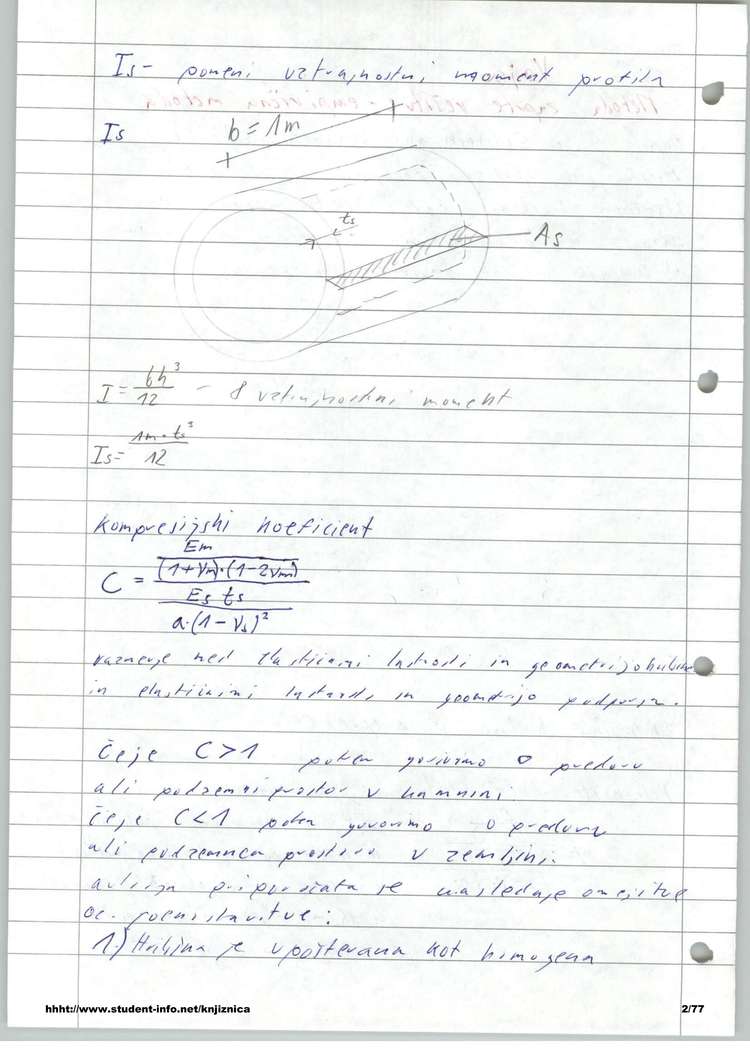 Is - pomeni vztrajnostni moment profila
Is
b = 1m
ts
As
I = bh³/12 - vztrajnostni moment
Is = 1m · ts³/12
Kompresijski koeficient
C = (Em / ((1+νm)·(1-2νm))) / (Es ts / (a·(1-νs)²))
razmerje med elastičnimi lastnosti in geometrijo hribine
in elastičnimi lastnosti in geometrijo podporja.
če je C>1 potem govorimo o predoru
ali podzemni prostor v kamnini
če je C<1 potem govorimo o predoru
ali podzemnega prostora v zemljini.
avtorja priporočata se naslednje omejitve
oz. poenostavitve:
1.) Hribina je upoštevana kot homogena
hhht://www.student-info.net/knjiznica
2/77